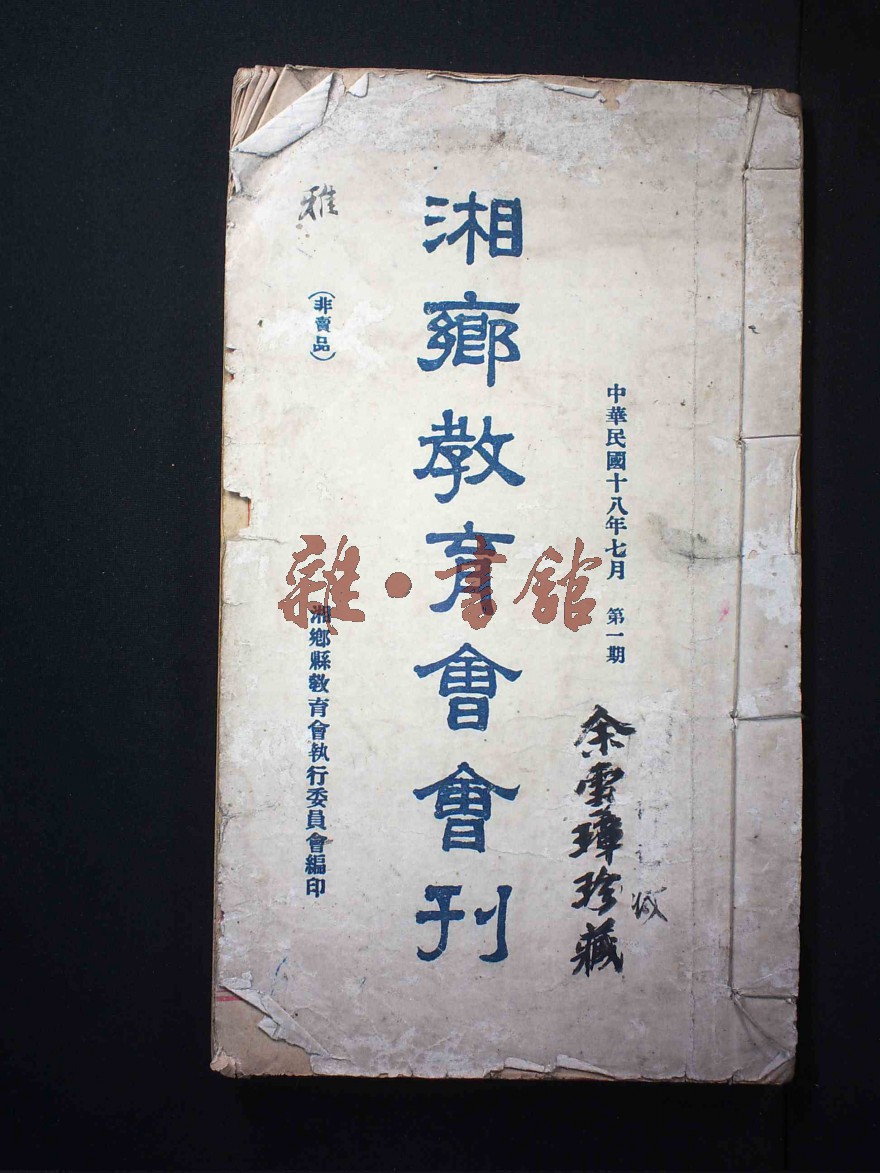 中華民國十八年七月　第一期
余雲璋珍藏
湘鄉教育會會刊
雅
（非賣品）
湘鄉縣教育會執行委員會編印
雜·書館